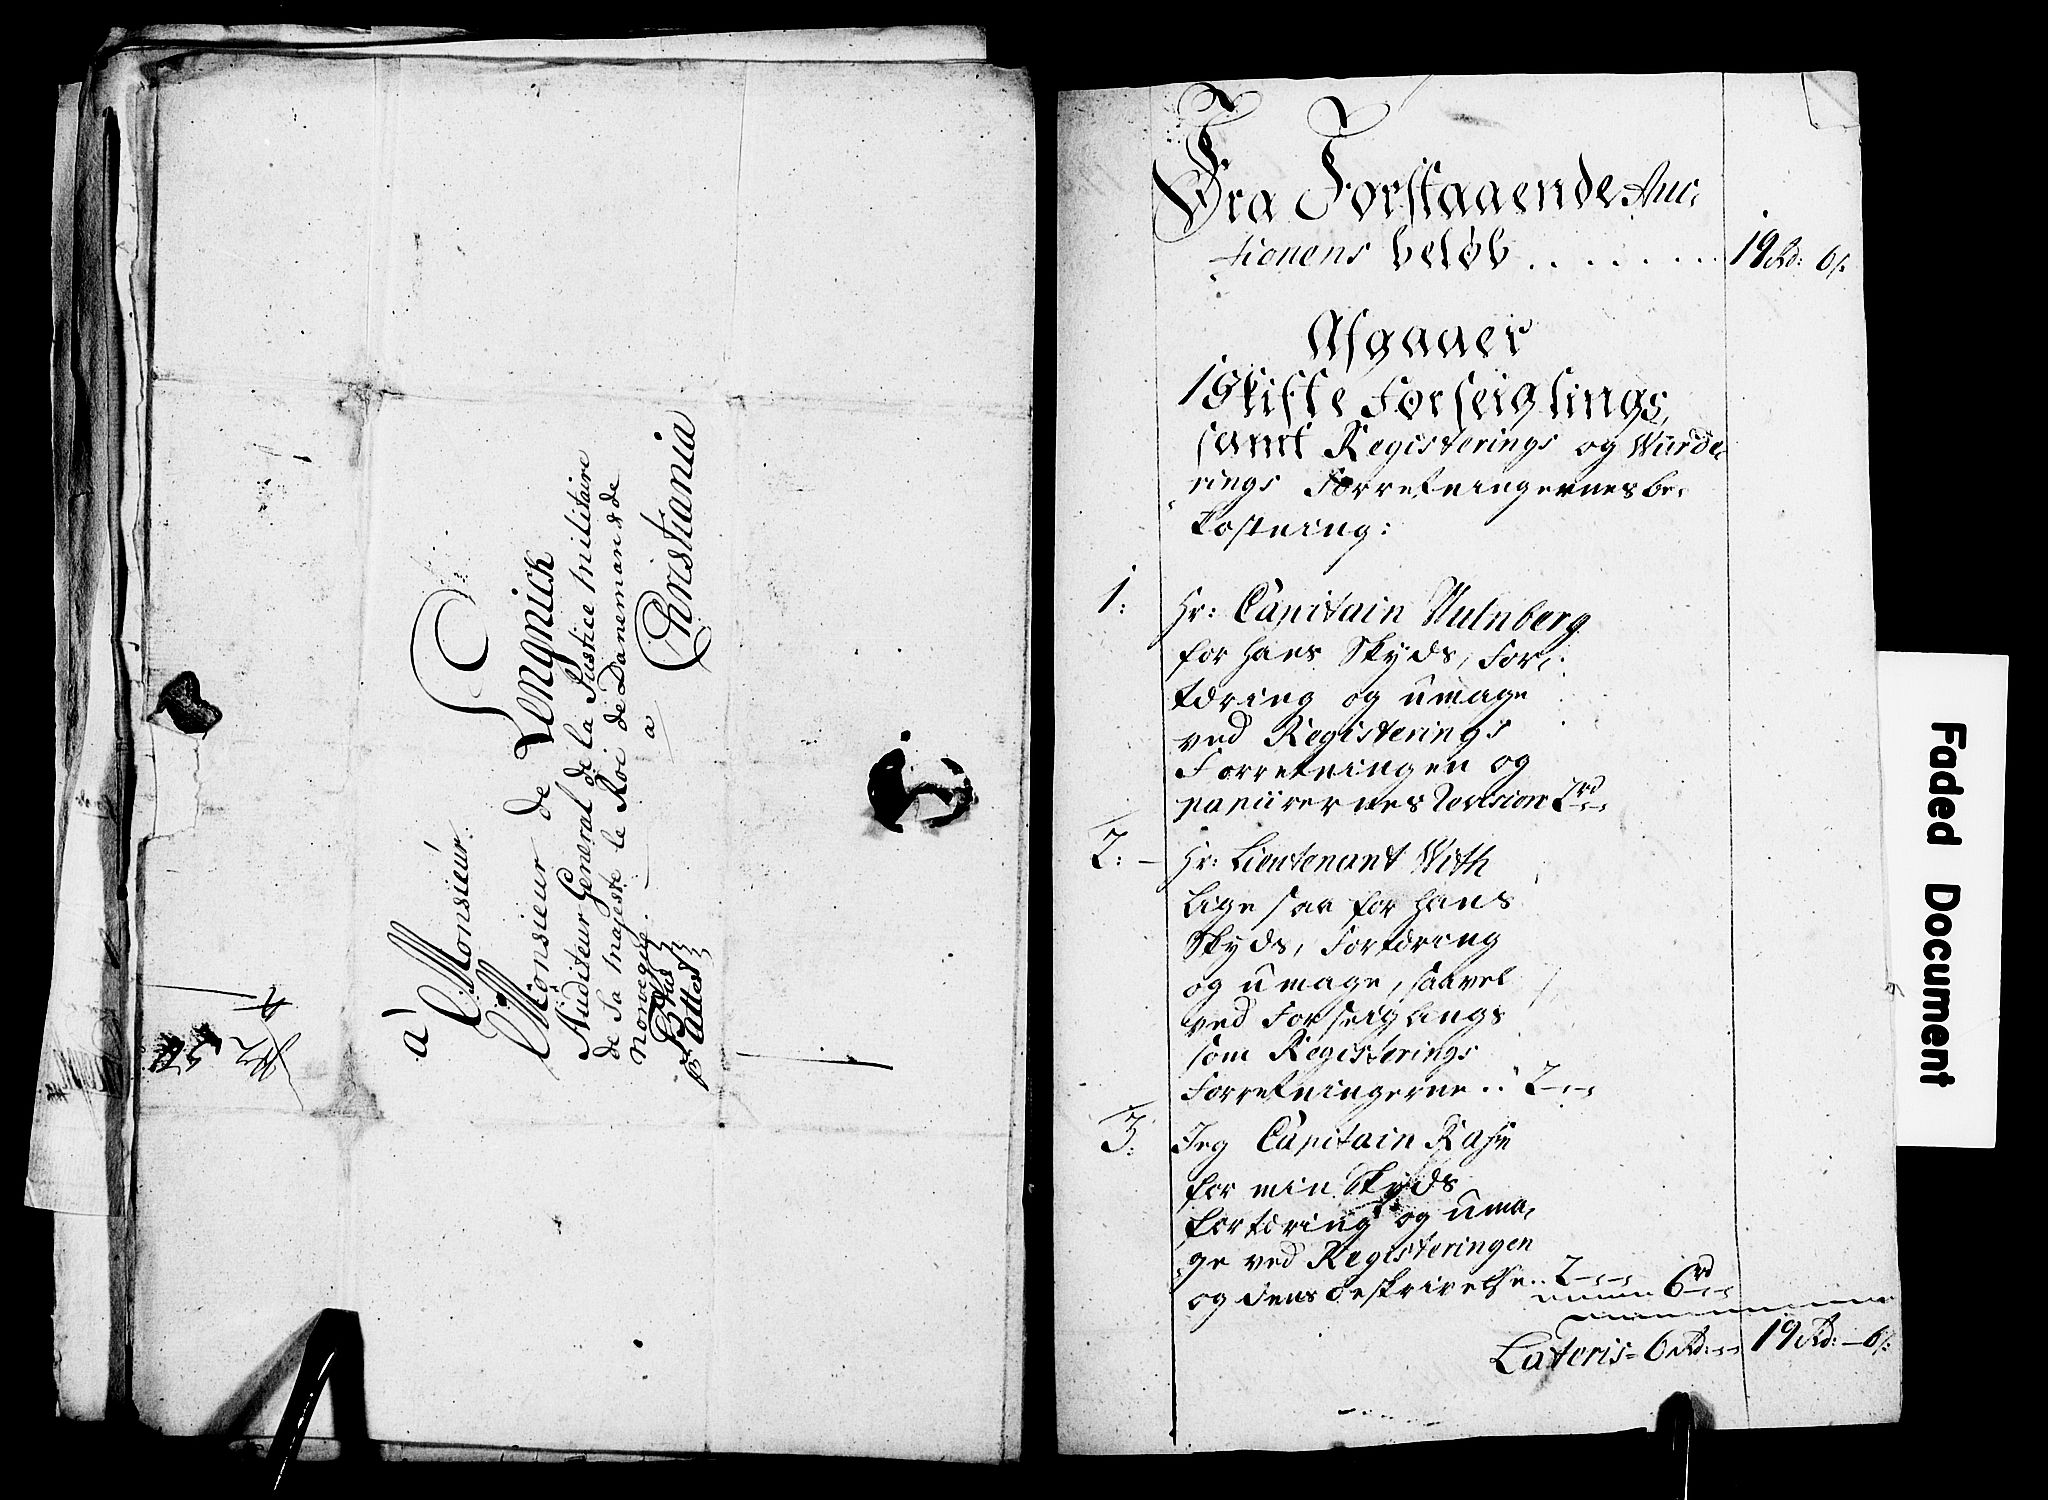 à Monsieur
Monsieur de Lengnick
Auditeur General de la Justice militaire
de Sa majesté le Roi de Danemarc & de
Norvegue.
a
Christania
Fra Forstaaende Auc,
tionens beløb . . . . . . . 19 Rd: 6 s:
Afgaaer
1 Skifte Forseiglings,
samt Registerings og Wurde,
rings Forretningernes be,
kostning:
1: Hr: Capitain
for hans Skyds, For,
tæring og umage
ved Registerings
Forretningen og
papiirernes Revision 2 rd
2: Hr: Lieutenant With
Lige saa for hans
Skyds, Fortæring
og umage, saavel
ved Forseiglings
som Registerings
Forretningerne .. 2
3: Jeg Capitain
for min Skyds
fortæring og uma,
ge ved Registeringen
og dens beskrivelse .. 2 6 rd
Lateris 6 Rd: 19 Rd: 6 s:
Faded Document